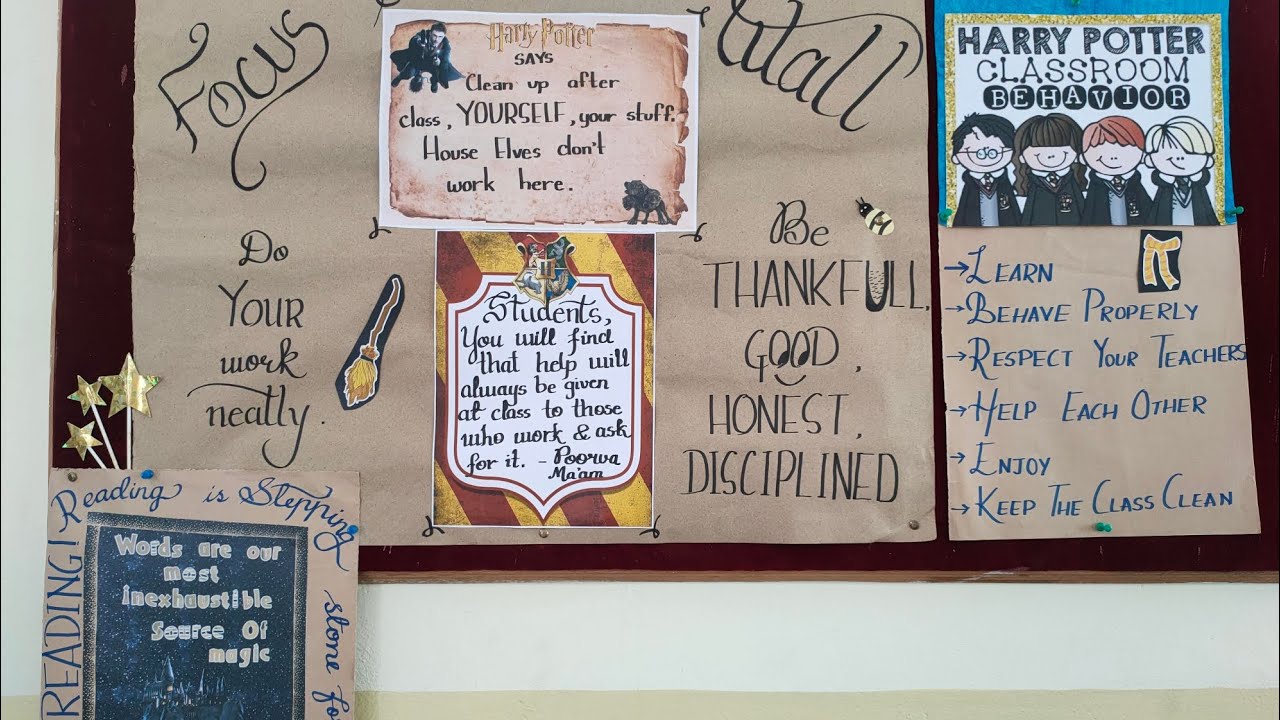 Focus
Harry Potter
SAYS
Clean up after
class, YOURSELF, your stuff.
House Elves don't
work here.
Do
YOUR
work
neatly.
Students,
You will find
that help will
always be given
at class to those
who work & ask
for it. - Poorva
Ma'am
Be
THANKFULL,
GOOD,
HONEST,
DISCIPLINED
HARRY POTTER
CLASSROOM
BEHAVIOR
→ LEARN
→ BEHAVE PROPERLY
→ RESPECT YOUR TEACHERS
→ HELP EACH OTHER
→ ENJOY
→ KEEP THE CLASS CLEAN
READING! Reading is Stepping
stone
Words are our
most
inexhaustible
Source Of
magic